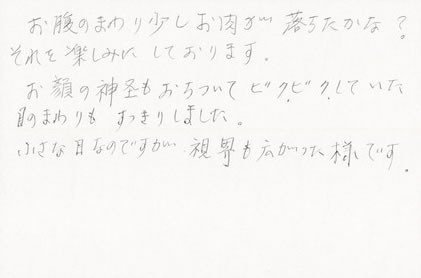 お腹のまわり少しお肉が落ちたかな?
それを楽しみにしております。
お顔の神経もおちついてビクビクしていた
目のまわりもすっきりしました。
小さな目なのですが視界も広がった様です。